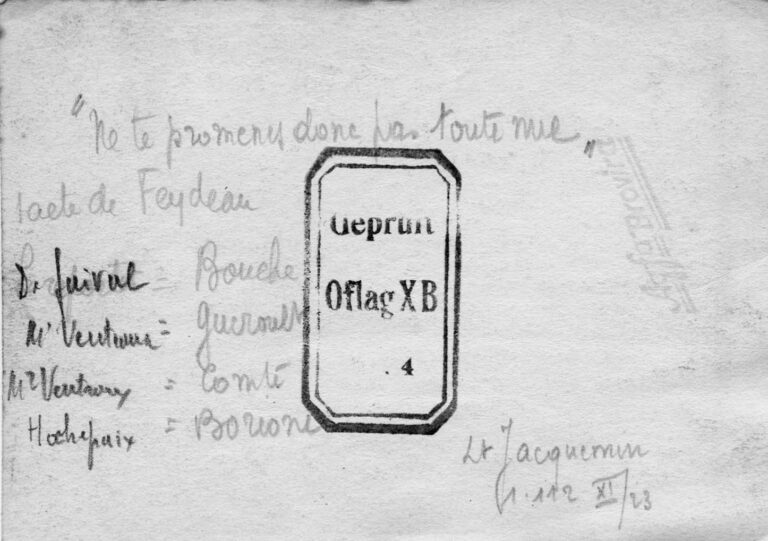 "Ne te promènes donc pas toute nue"
1 acte de Feydeau
De Jaival = Bouché
Mr Ventroux = Gueroult
Me Ventroux = Comté
Hochepaix = Borione
Geprüft
Oflag X B
4
Lt Jacquemin
1.112 XI/23